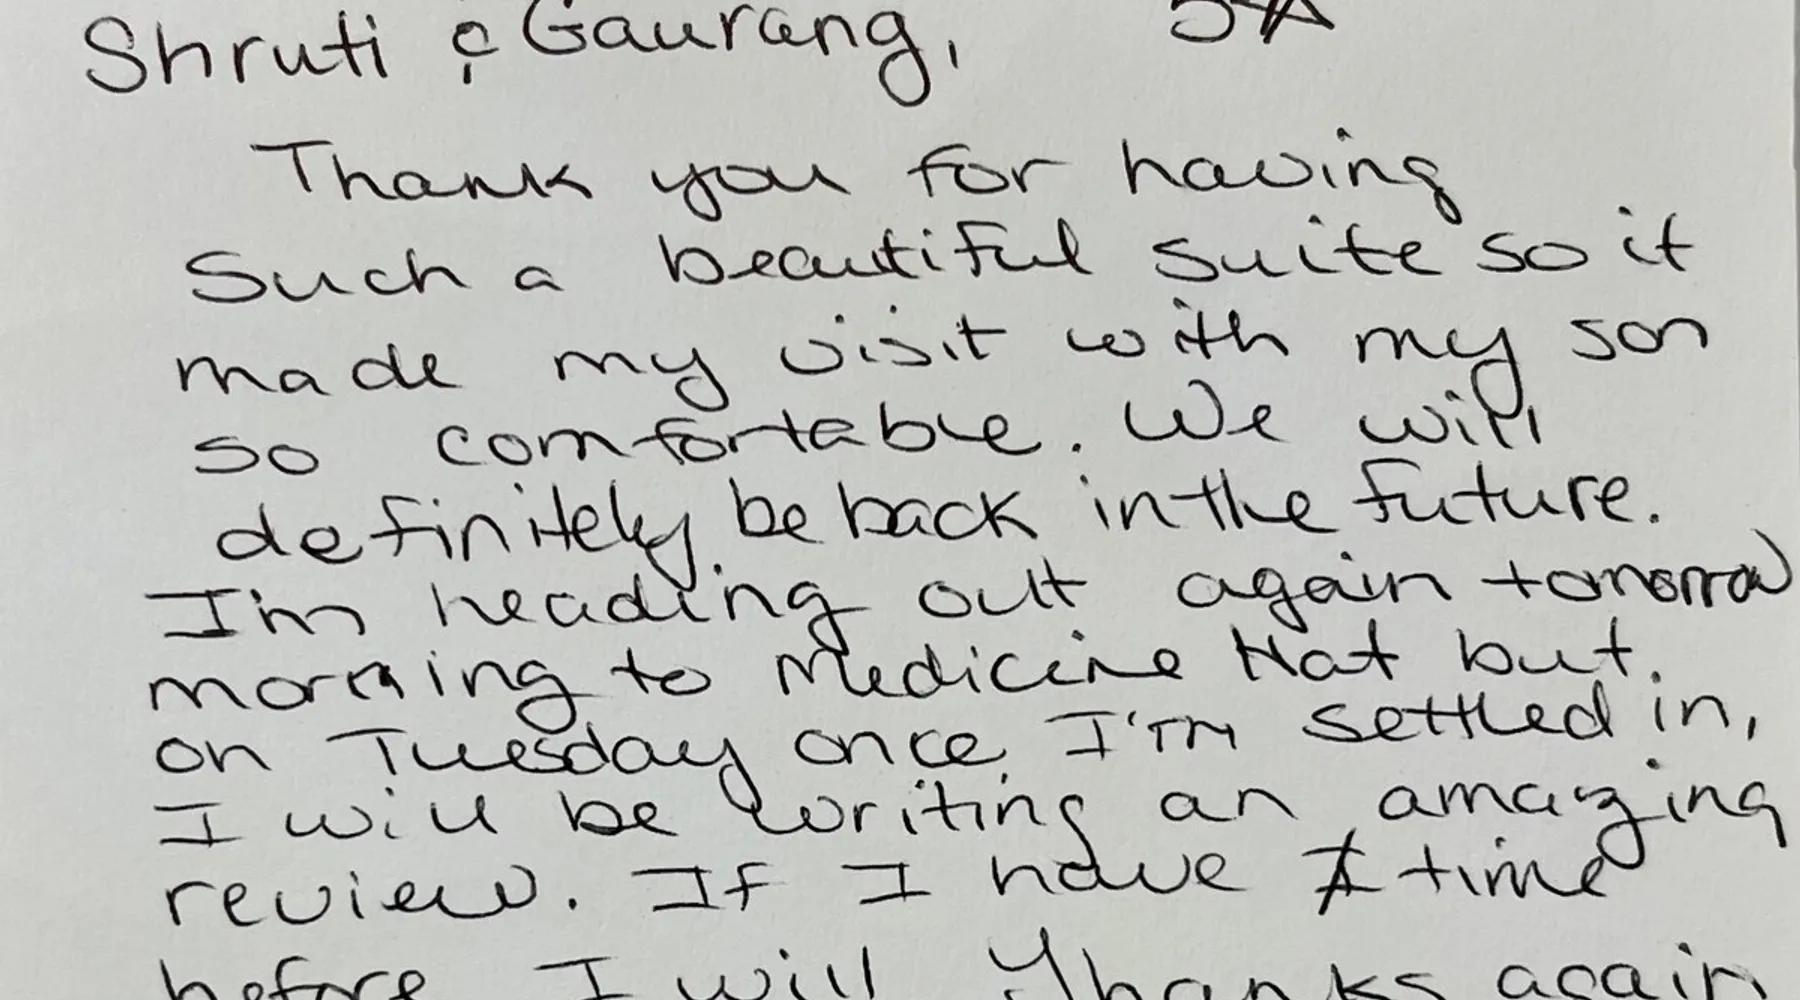 Shruti & Gaurang,
Thank you for having
Such a beautiful suite so it
made my visit with my son
so comfortable. We will
definitely be back in the future.
I'm heading out again tomorrow
morning to Medicine Hat but
on Tuesday once I'm settled in,
I will be writing an amazing
review. If I have time
before I will Thanks again